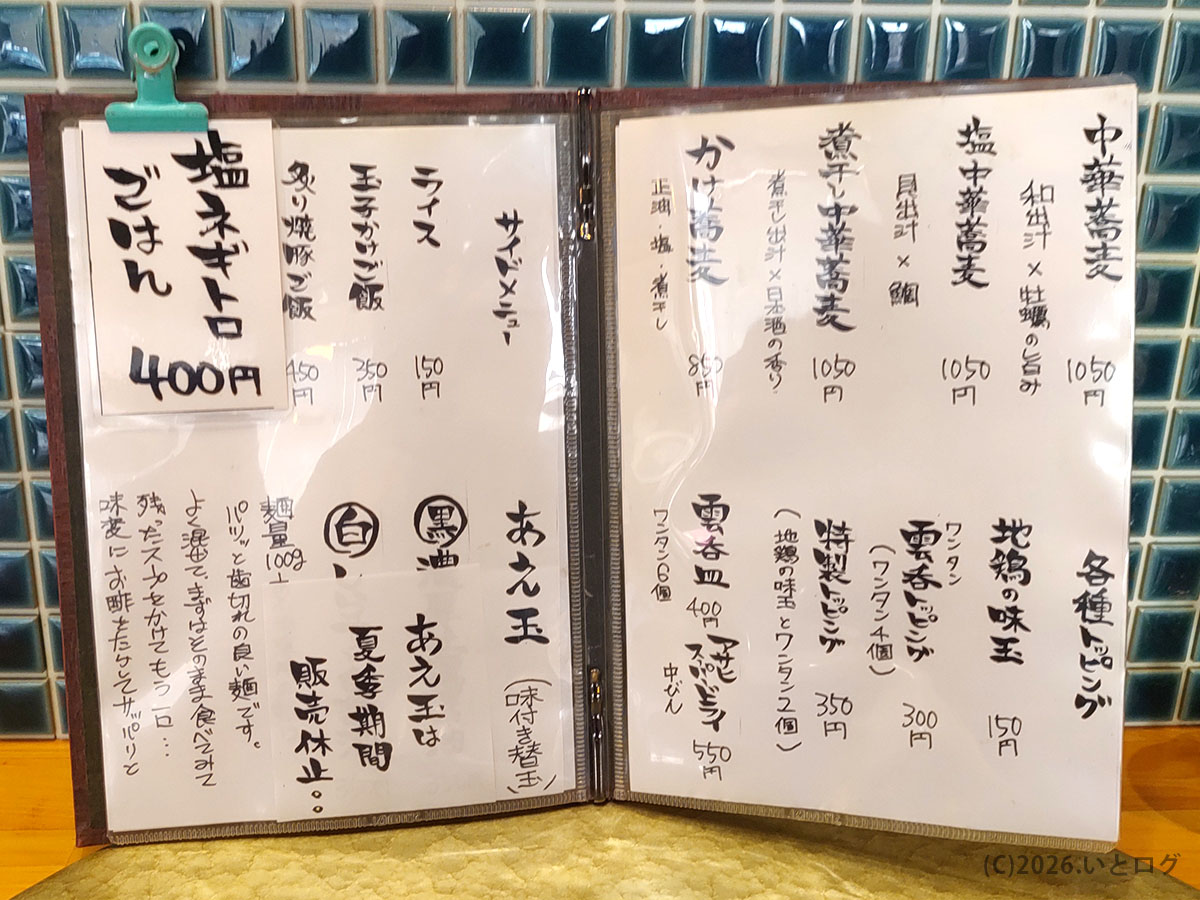 中華蕎麦
和出汁×牡蠣の旨み
1050円
塩中華蕎麦
貝出汁×鯛
1050円
煮干し中華蕎麦
煮干し出汁×日本酒の香り
1050円
かけ蕎麦
正油・塩・煮干し
850円
各種トッピング
地鶏の味玉
150円
ワンタン
雲呑トッピング
(ワンタン4個)
300円
特製トッピング
(地鶏の味玉とワンタン2個)
350円
雲呑皿
400円
ワンタン6個
アサヒ
スーパードライ
中びん
550円
サイドメニュー
ライス
150円
玉子かけご飯
350円
炙り焼豚ご飯
450円
塩ネギトロ
ごはん
400円
あえ玉
(味付き替玉)
黒
白
あえ玉は
夏季期間
販売休止。。
麺量100g
パツッと歯切れの良い麺です。
よく混ぜて、まずはそのまま食べてみて
残ったスープをかけてもう一口…
味変にお酢をたらしてサッパリと
(C)2026.いとログ